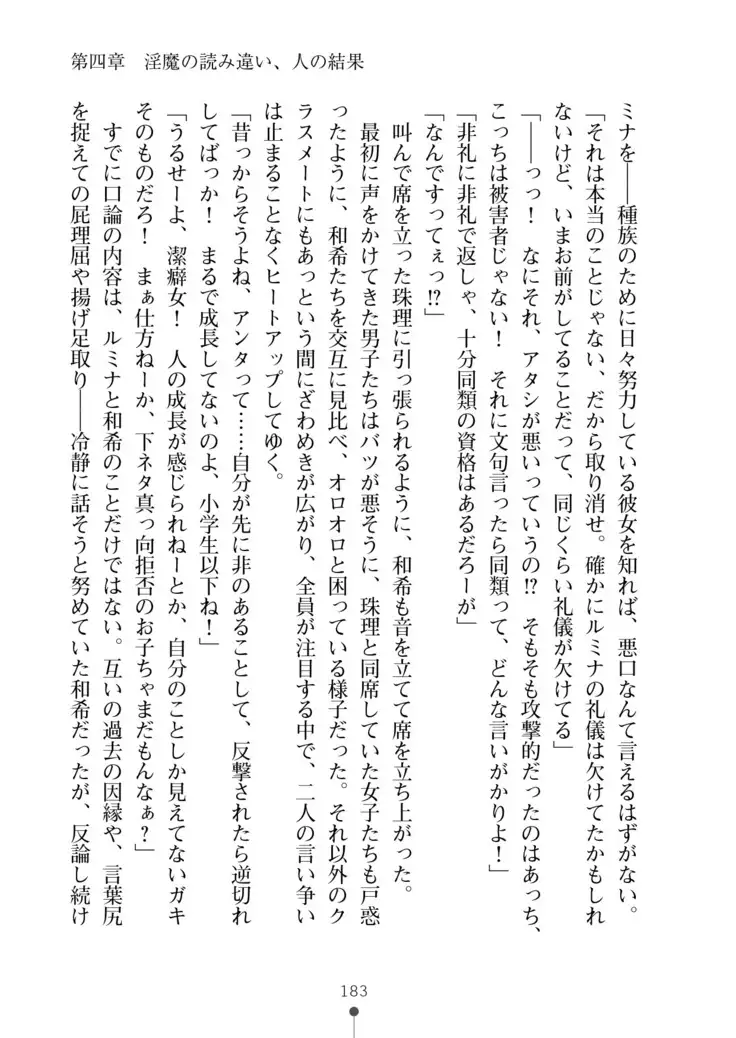 第四章　淫魔の読み違い、人の結果
ミナを――種族のために日々努力している彼女を知れば、悪口なんて言えるはずがない。
「それは本当のことじゃない、だから取り消せ。確かにルミナの礼儀は欠けてたかもしれ
ないけど、いまお前がしてることだって、同じくらい礼儀が欠けてる」
「――っっ！　なにそれ、アタシが悪いっていうの⁉　そもそも攻撃的だったのはあっち、
こっちは被害者じゃない！　それに文句言ったら同類って、どんな言いがかりよ！」
「非礼に非礼で返しゃ、十分同類の資格はあるだろーが」
「なんですってぇっ⁉」
　叫んで席を立った珠理に引っ張られるように、和希も音を立てて席を立ち上がった。
　最初に声をかけてきた男子たちはバツが悪そうに、珠理と同席していた女子たちも戸惑
ったように、和希たちを交互に見比べ、オロオロと困っている様子だった。それ以外のク
ラスメートにもあっという間にざわめきが広がり、全員が注目する中で、二人の言い争い
は止まることなくヒートアップしてゆく。
「昔っからそうよね、アンタって……自分が先に非のあることして、反撃されたら逆切れ
してばっか！　まるで成長してないのよ、小学生以下ね！」
「うるせーよ、潔癖女！　人の成長が感じられねーとか、自分のことしか見えてないガキ
そのものだろ！　まぁ仕方ねーか、下ネタ真っ向拒否のお子ちゃまだもんなぁ？」
　すでに口論の内容は、ルミナと和希のことだけではない。互いの過去の因縁や、言葉尻
を捉えての屁理屈や揚げ足取り――冷静に話そうと努めていた和希だったが、反論し続け
183